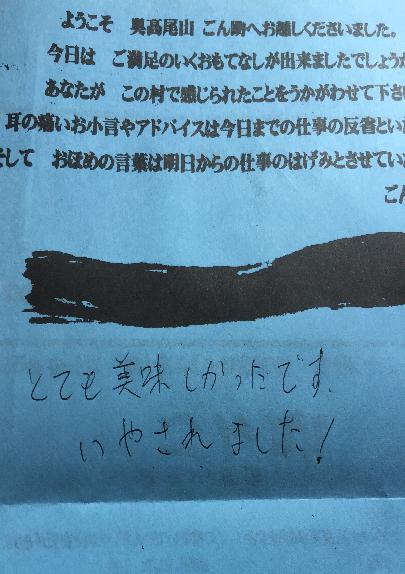 ようこそ 奥高尾山 ごん助へお越しくださいました。
今日は ご満足のいくおもてなしが出来ましたでしょうか
あなたが この村で感じられたことをうかがわせて下さ
耳の痛いお小言やアドバイスは今日までの仕事の反省とい
そして おほめの言葉は明日からの仕事のはげみとさせてい
ごん
とても美味しかったです.
いやされました!